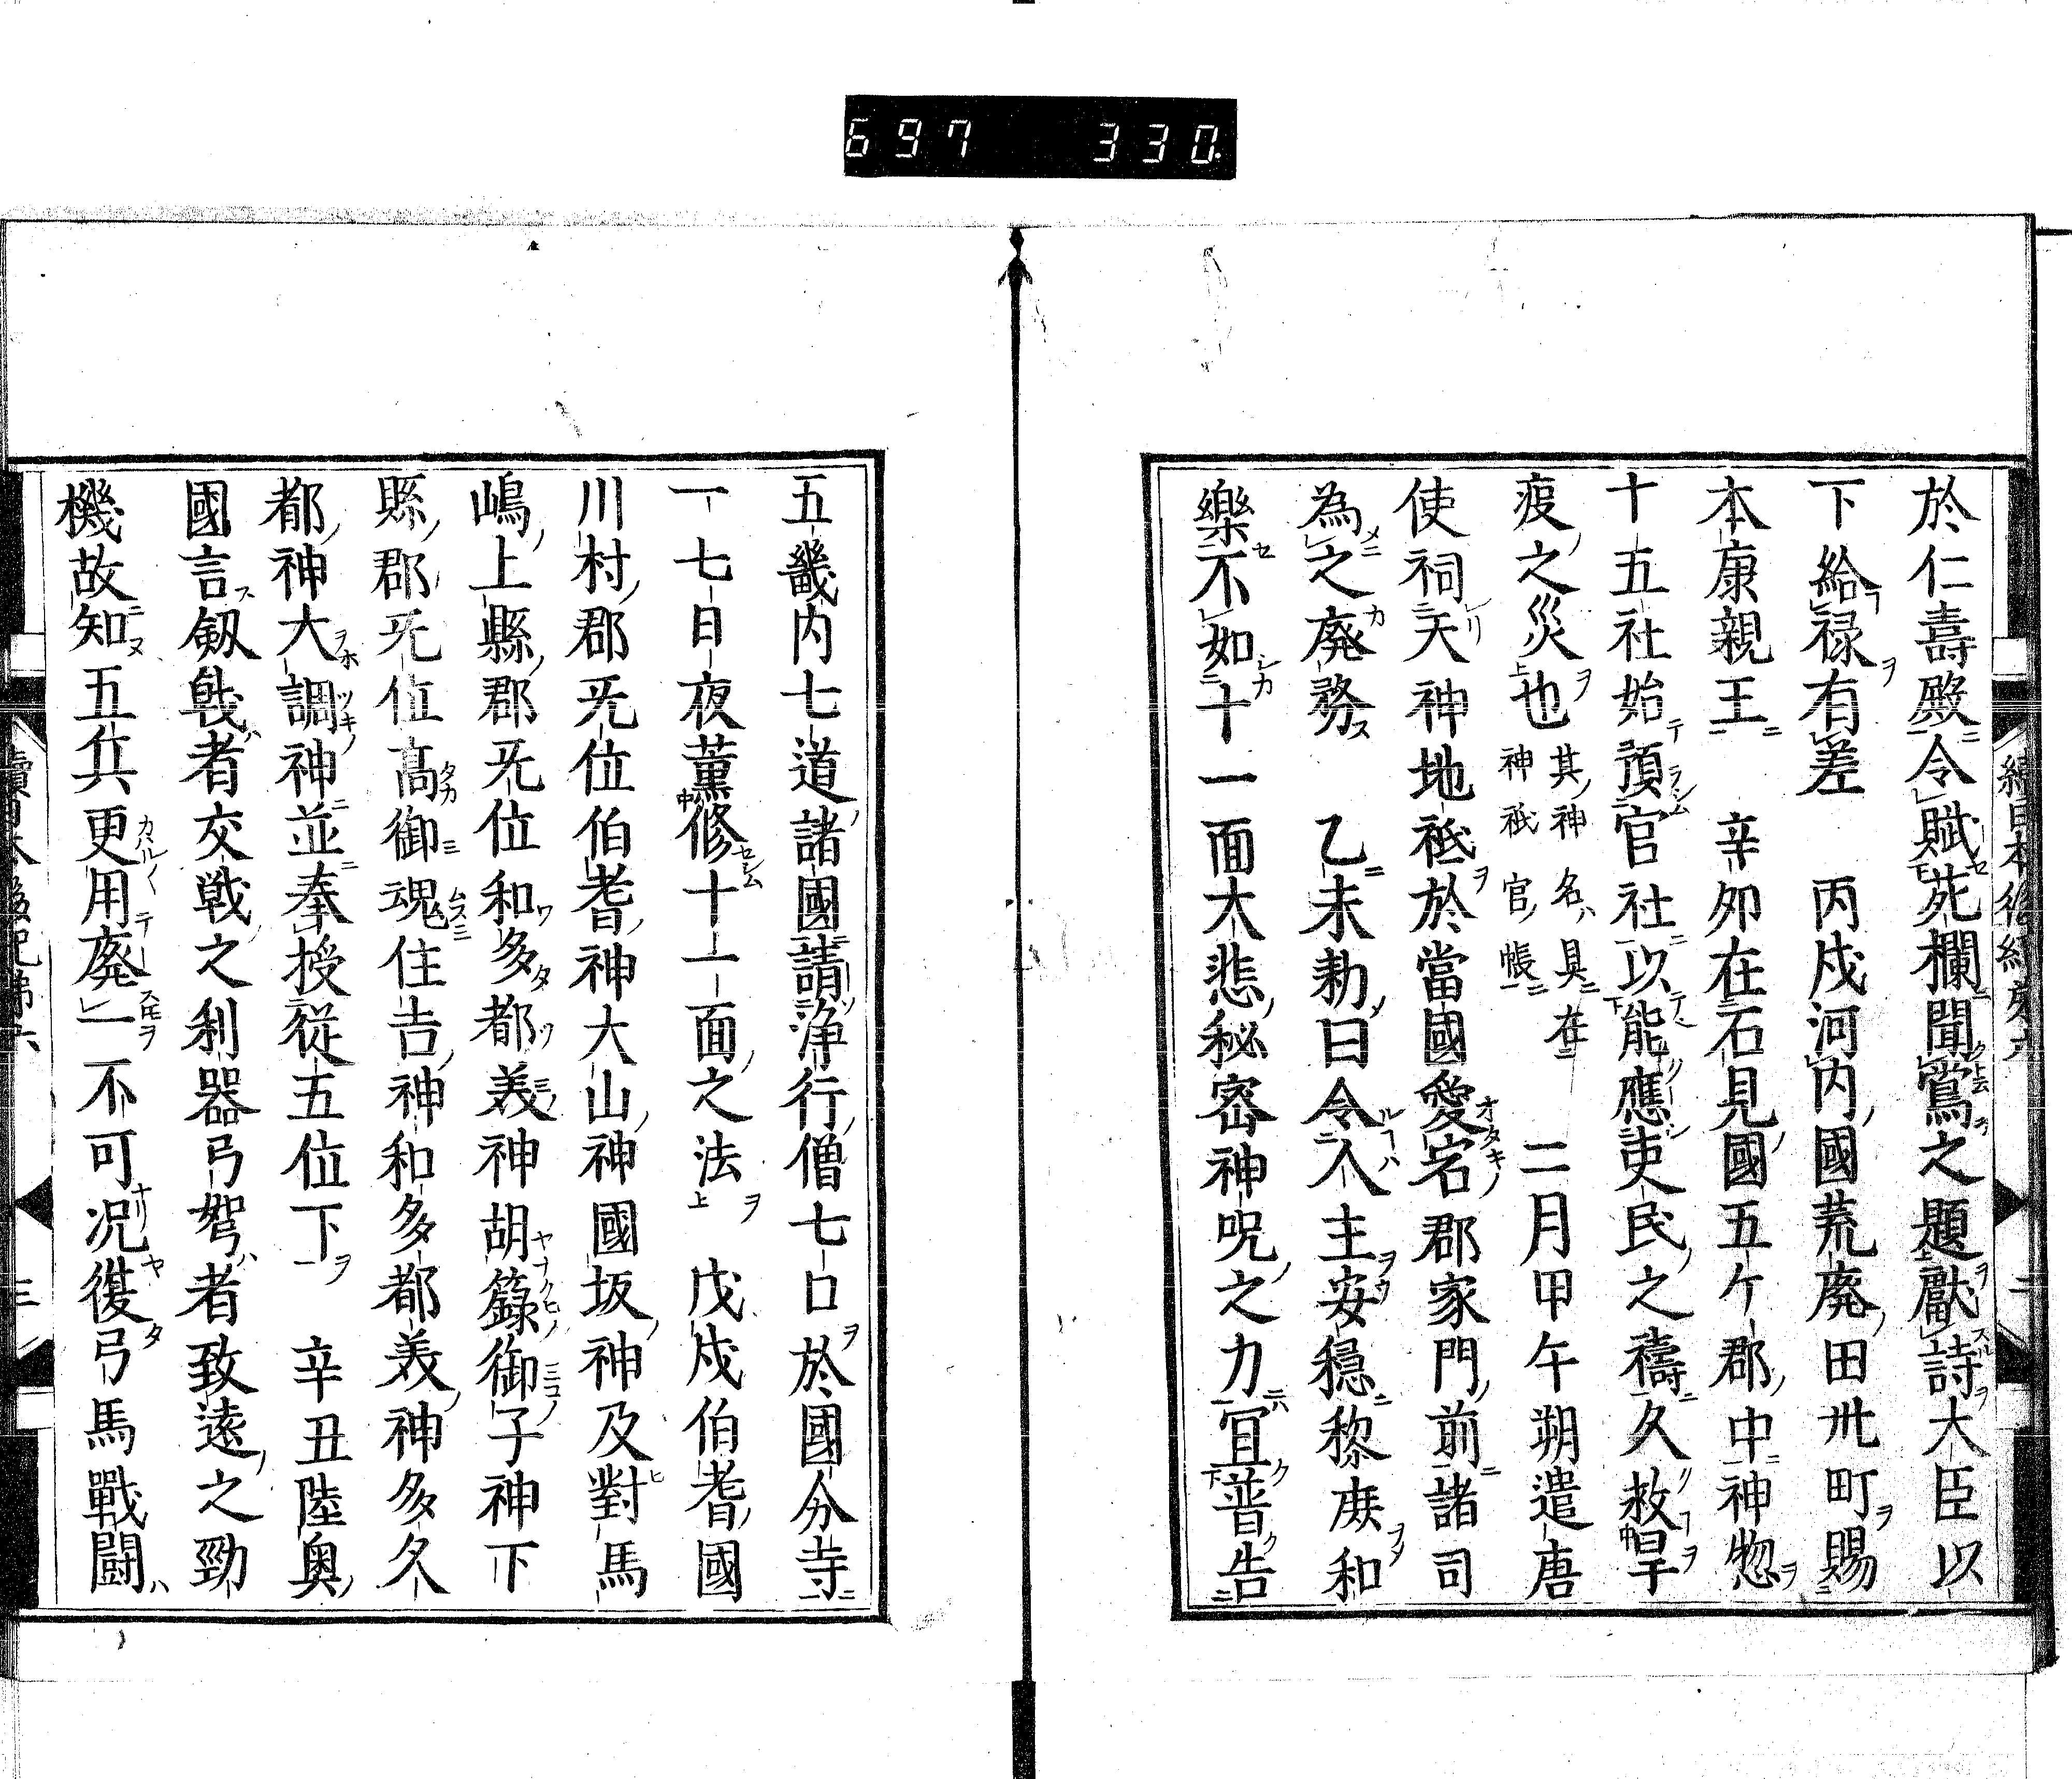 697 330.
於仁壽殿令賦死欄聞鴬之題獻詩大臣以
下給禄有差 丙戍河内國荒廢田卅町賜
本康親王 辛夘在石見國五ケ郡中神惣
十五社始預官社以能應吏民之禱久救旱
疫之災也其神名具在神祇官帳 二月甲午朔遣唐
使祠天神地祇於當國愛宕郡家門前諸司
為之廢務 乙未勅曰令入主安穏黎庻和
樂不如十一面大悲秘密神呪之力宜普告
五畿内七道諸國請浄行僧七口於國分寺
一七日夜薫修十一面之法 戊戍伯耆國
川村郡旡位伯耆神大山神國坂神及對馬
嶋上縣郡旡位和多都美神胡籙御子神下
縣郡旡位髙御魂住吉神和多都美神多久
都神大調神並奉授従五位下 辛丑陸奥
國言剱㦸者交戦之利器弓弩者致遠之勁
機故知五兵更用廢一不可況復弓馬戰闘